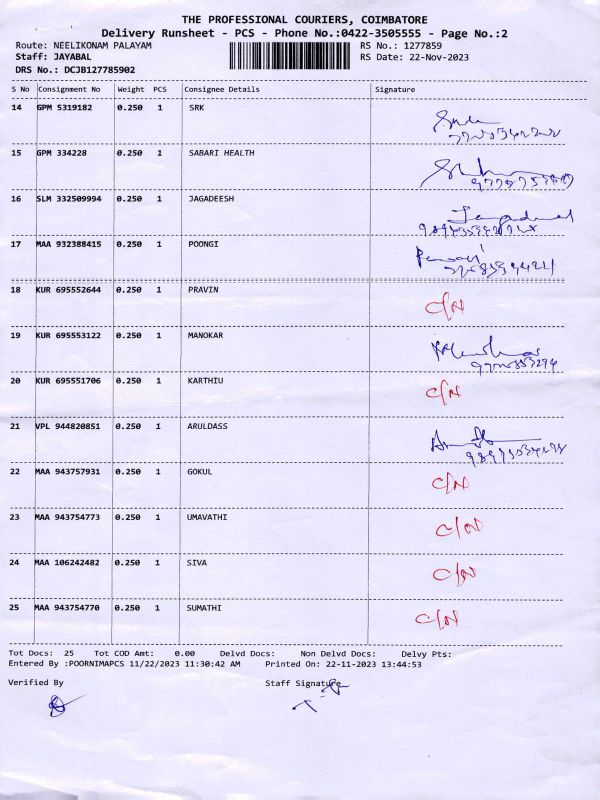 THE PROFESSIONAL COURIERS, COIMBATORE
Delivery Runsheet - PCS - Phone No.:0422-3505555 - Page No.:2
Route: NEELIKONAM PALAYAM RS No.: 1277859
Staff: JAYABAL RS Date: 22-Nov-2023
DRS No.: DCJB127785902
S No Consignment No Weight PCS Consignee Details Signature
14 GPM 5319182 0.250 1 SRK
15 GPM 334228 0.250 1 SABARI HEALTH
16 SLM 332509994 0.250 1 JAGADEESH
17 MAA 932388415 0.250 1 POONGI
18 KUR 695552644 0.250 1 PRAVIN C/N
19 KUR 695553122 0.250 1 MANOKAR
20 KUR 695551706 0.250 1 KARTHIU C/N
21 VPL 944820851 0.250 1 ARULDASS
22 MAA 943757931 0.250 1 GOKUL C/N
23 MAA 943754773 0.250 1 UMAVATHI C/N
24 MAA 106242482 0.250 1 SIVA C/N
25 MAA 943754770 0.250 1 SUMATHI C/N
Tot Docs: 25 Tot COD Amt: 0.00 Delvd Docs: Non Delvd Docs: Delvy Pts:
Entered By :POORNIMAPCS 11/22/2023 11:30:42 AM Printed On: 22-11-2023 13:44:53
Verified By Staff Signature